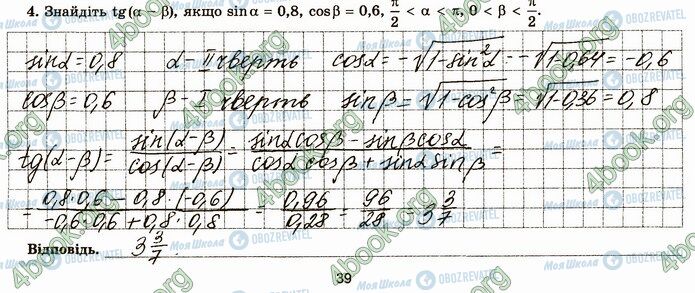 4. Знайдіть tg(α − β), якщо sin α = 0,8, cos β = 0,6, π/2 < α < π, 0 < β < π/2.
sinα = 0,8 α - II чверть cosα = -√(1-sin²α) = -√(1-0,64) = -0,6
cosβ = 0,6 β - I чверть sinβ = √(1-cos²β) = √(1-0,36) = 0,8
tg(α-β) = sin(α-β)/cos(α-β) = (sinα cosβ - sinβ cosα)/(cosα cosβ + sinα sinβ) =
= (0,8·0,6 - 0,8·(-0,6))/(-0,6·0,6 + 0,8·0,8) = 0,96/0,28 = 96/28 = 3 3/7
Відповідь. 3 3/7
39